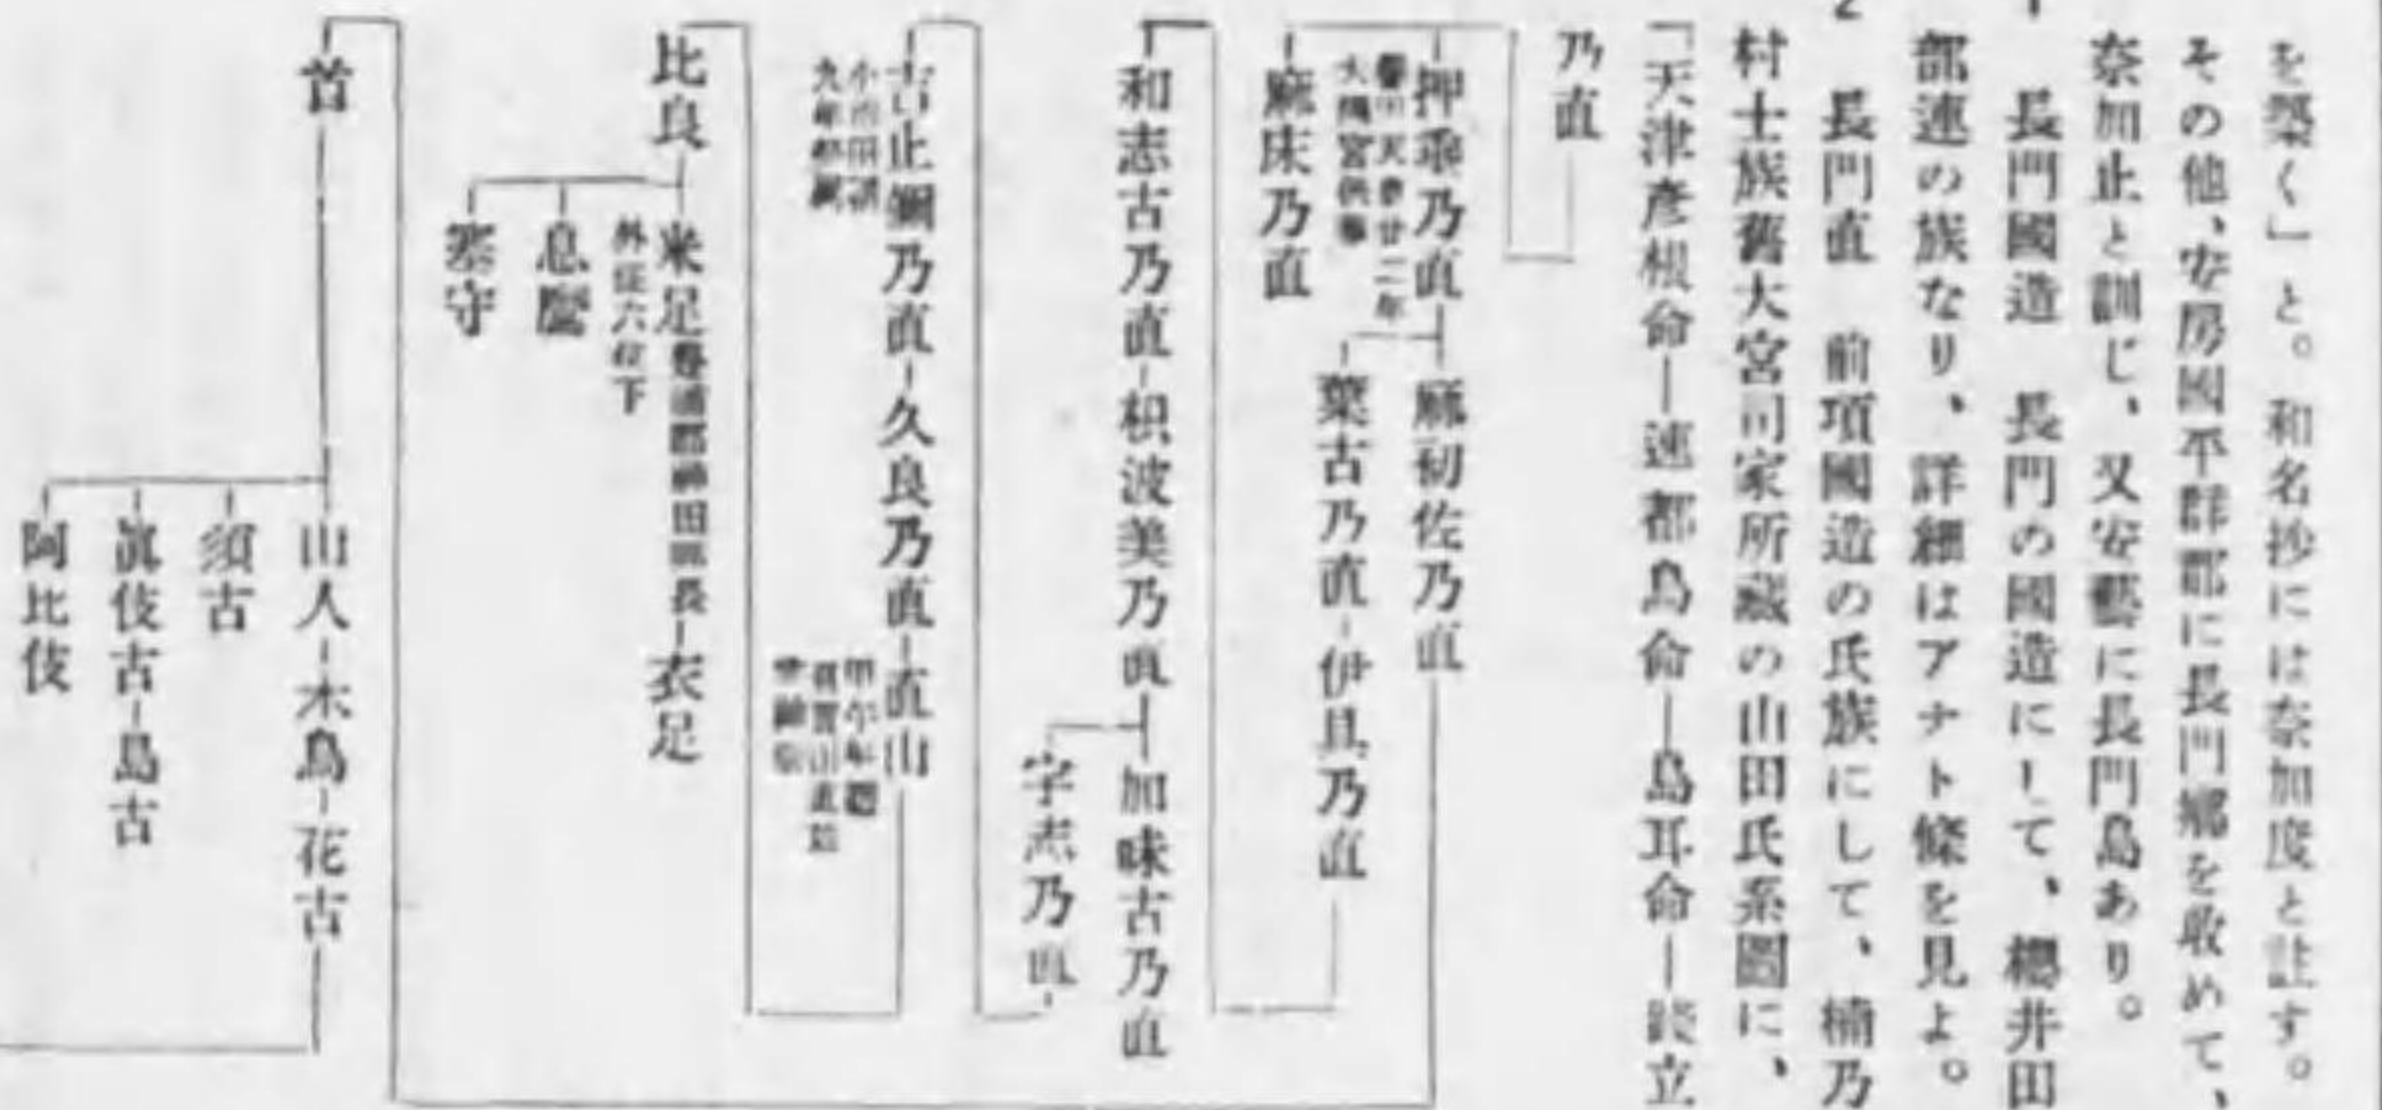 を築く」と。和名抄には奈加度と註す。
その他、安房國平群郡に長門郷を收めて、
奈加止と訓じ、又安藝に長門島あり。
1 長門國造 長門の國造にして、櫻井田
部連の族なり、詳細はアナト條を見よ。
2 長門直 前項國造の氏族にして、楠乃
村士族舊大宮司家所藏の山田氏系圖に、
「天津彦根命―速都鳥命―島耳命―談立
乃直
押乘乃直―麻初佐乃直
天 廿二年
大 宮供奉
葉古乃直―伊具乃直
麻床乃直
和志古乃直―枳波美乃直―加味古乃直
字志乃直
古止禰乃直―久良乃直―直山
比良―米足 郡神田 長―衣足
外從六位下
息鷹
塞守
首―山人―木鳥―花古
須古
眞伎古―島古
阿比伎